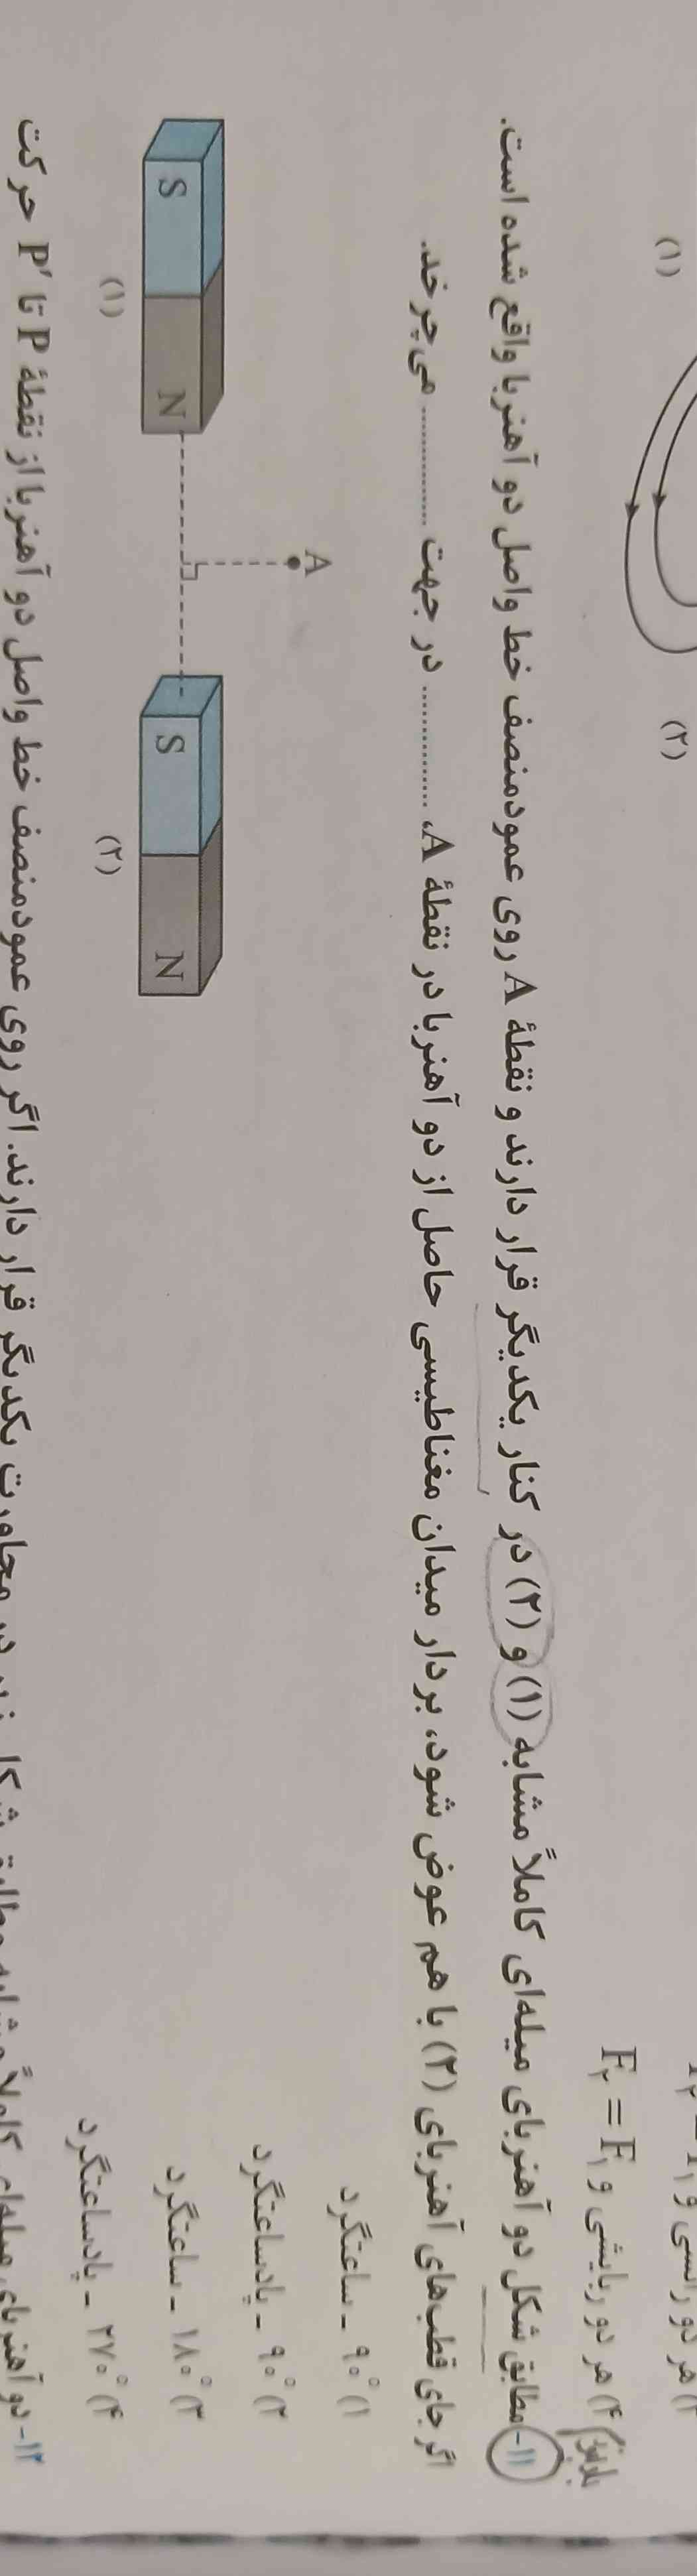 (۱) (۲)
۴) هر دو ربایشی و F₂ = F₁
۱۱- مطابق شکل دو آهنربای میله‌ای کاملاً مشابه (۱) و (۲) در کنار یکدیگر قرار دارند و نقطهٔ A روی عمودمنصف خط واصل دو آهنربا واقع شده است.
اگر جای قطب‌های آهنربای (۲) با هم عوض شود، بردار میدان مغناطیسی حاصل از دو آهنربا در نقطهٔ A، .............. در جهت .............. می‌چرخد.
۱) ۹۰° - ساعتگرد
A
۲) ۹۰° - پادساعتگرد
S N S N
۳) ۱۸۰° - ساعتگرد
(۱) (۲)
۴) ۲۷۰° - پادساعتگرد
۱۲- دو آهنربای میله‌ای کاملاً مشابه مطابق شکل زیر در مجاورت یکدیگر قرار دارند. اگر روی عمودمنصف خط واصل دو آهنربا از نقطهٔ P تا P′ حرکت